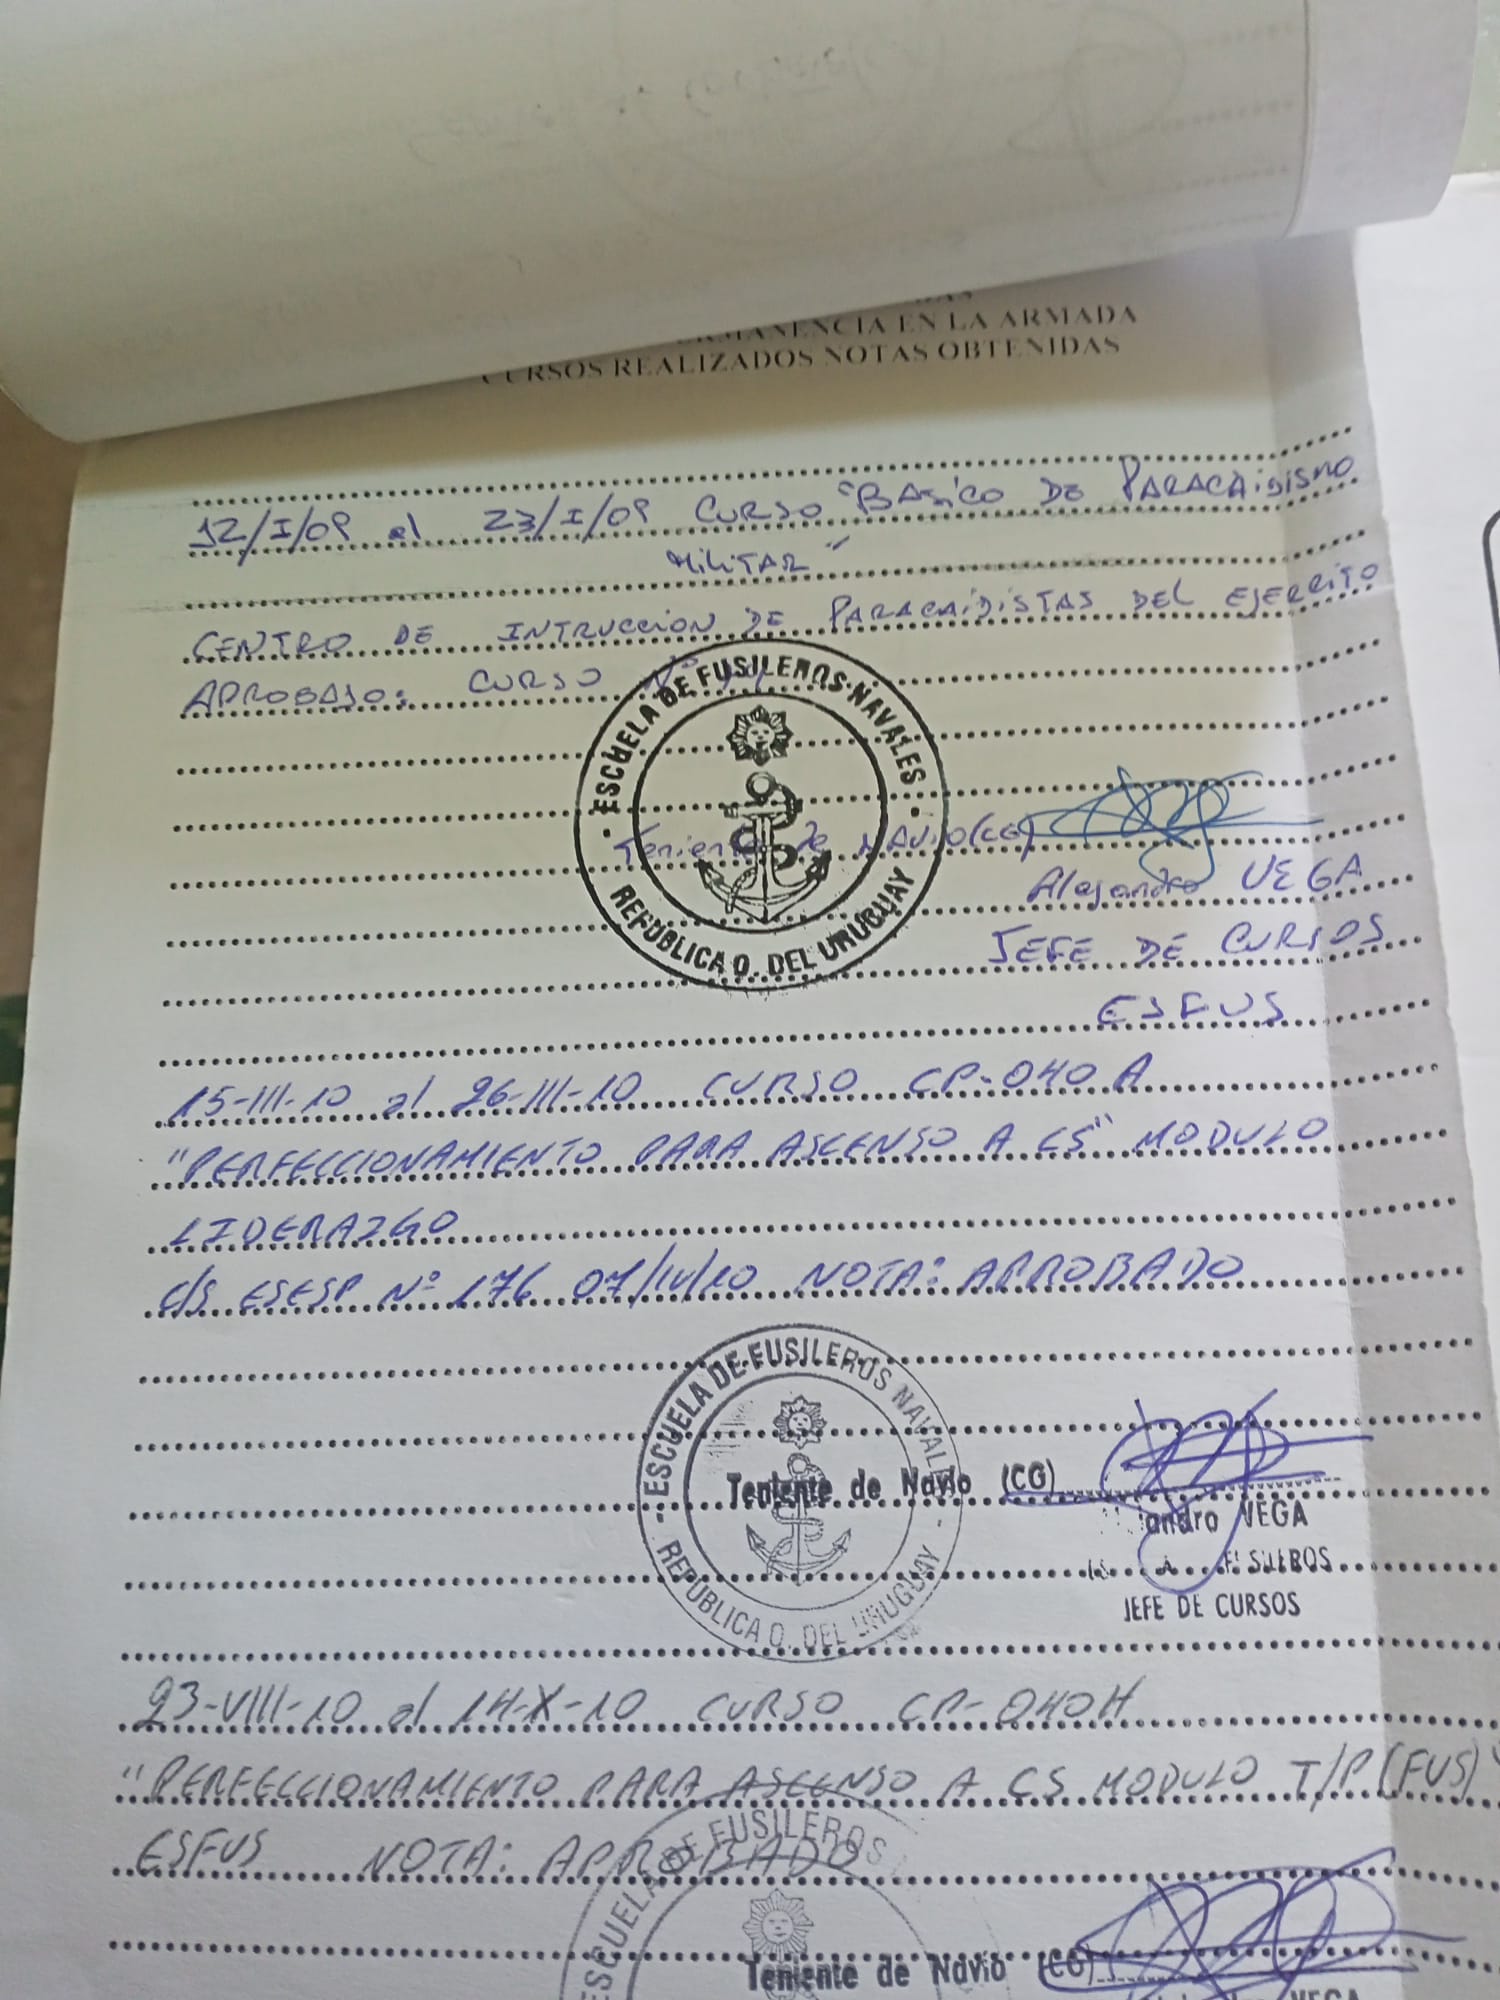 PERMANENCIA EN LA ARMADA
CURSOS REALIZADOS NOTAS OBTENIDAS
12/I/09 al 23/I/09 CURSO "BASICO DE PARACAIDISMO
MILITAR"
CENTRO DE INTRUCCION DE PARACAIDISTAS DEL EJERCITO
APROBADO: CURSO Nº
ESCUELA DE FUSILEROS NAVALES
REPÚBLICA O. DEL URUGUAY
Teniente de NAVIO (CG)
Alejandro VEGA
JEFE DE CURSOS
ESFUS
15-III-10 al 26-III-10 CURSO CP-040A
"PERFECCIONAMIENTO PARA ASCENSO A CS" MODULO
LIDERAZGO
C/S ESESP Nº 176 07/IV/10 NOTA: APROBADO
ESCUELA DE FUSILEROS NAVALES
REPÚBLICA O. DEL URUGUAY
Teniente de Navío (CG)
andro VEGA
JEFE DE CURSOS
23-VIII-10 al 14-X-10 CURSO CP-040H
"PERFECCIONAMIENTO PARA ASCENSO A CS MODULO T/P (FUS)"
ESFUS NOTA: APROBADO
ESCUELA DE FUSILEROS
Teniente de Navío (CG)
VEGA